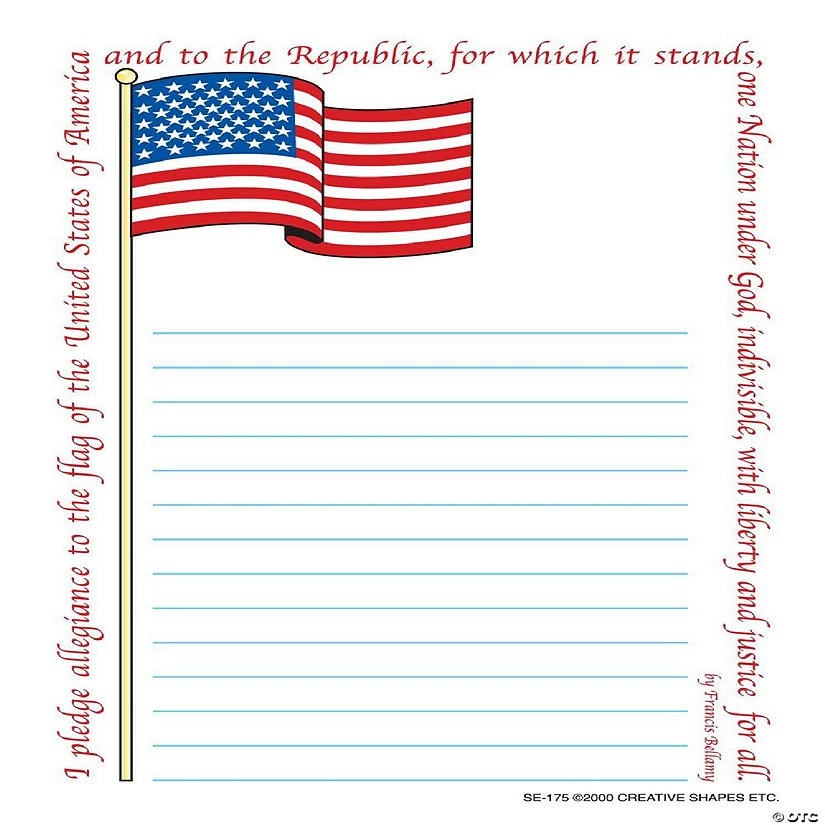 I pledge allegiance to the flag of the United States of America
and to the Republic, for which it stands,
one Nation under God, indivisible, with liberty and justice for all.
by Francis Bellamy
SE-175 ©2000 CREATIVE SHAPES ETC.
© OTC